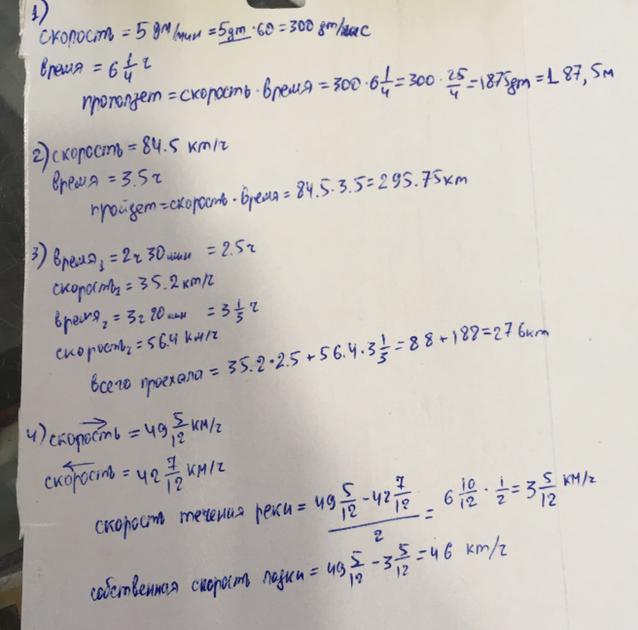 1)
скорость = 5 дм/мин = 5дт · 60 = 300 дт/час
время = 6 1/4 г
проползет = скорость · время = 300 · 6 1/4 = 300 · 25/4 = 1875дт = 187,5м
2) скорость = 84.5 км/г
время = 3.5г
пройдет = скорость · время = 84.5 · 3.5 = 295.75км
3) время₁ = 2ч 30мин = 2.5г
скорость₂ = 35.2 км/г
время₂ = 3г 20мин = 3 1/3 г
скорость₂ = 56.4 км/г
всего проехала = 35.2 · 2.5 + 56.4 · 3 1/3 = 88 + 188 = 276км
4) скорость → = 49 5/12 км/г
скорость ← = 42 7/12 км/г
скорость течения реки = (49 5/12 - 42 7/12)/2 = 6 10/12 · 1/2 = 3 5/12 км/г
собственная скорость лодки = 49 5/12 - 3 5/12 = 46 км/г